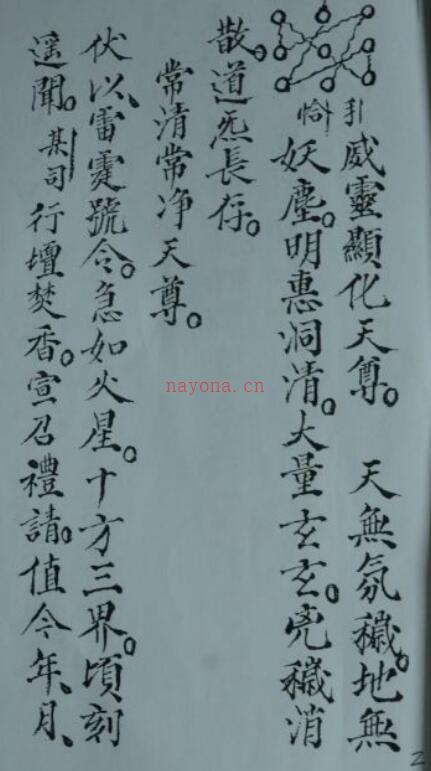 引 威靈顯化天尊。 天無氛穢。地無
恰 妖塵。明惠洞清。大量玄玄。兇穢消
散。道炁長存。
常清常净天尊。
伏以、雷霆號令。急如火星。十方三界。頃刻
遥聞。某司行壇焚香。宣召禮請。值今年、月、
nayona.cn
2